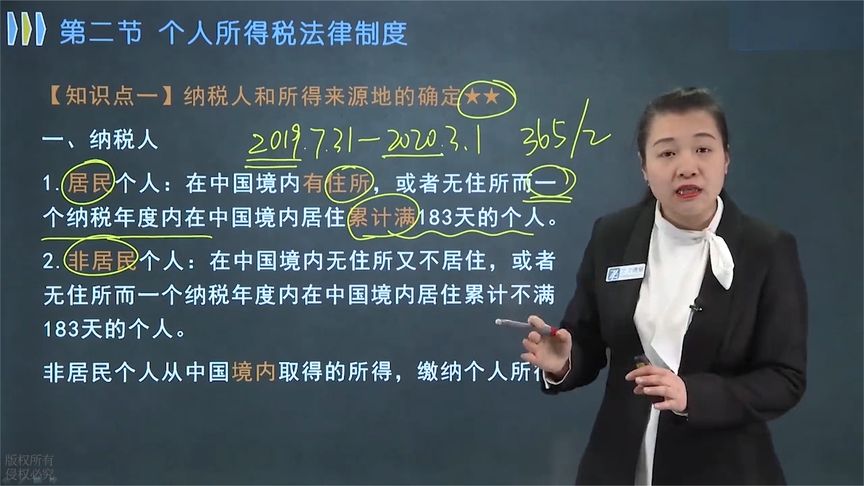 第二节 个人所得税法律制度
【知识点一】纳税人和所得来源地的确定★★
一、纳税人
2019.7.31—2020.3.1 365/2
1.居民个人：在中国境内有住所，或者无住所而一
个纳税年度内在中国境内居住累计满183天的个人。
2.非居民个人：在中国境内无住所又不居住，或者
无住所而一个纳税年度内在中国境内居住累计不满
183天的个人。
非居民个人从中国境内取得的所得，缴纳个人所
版权所有
侵权必究